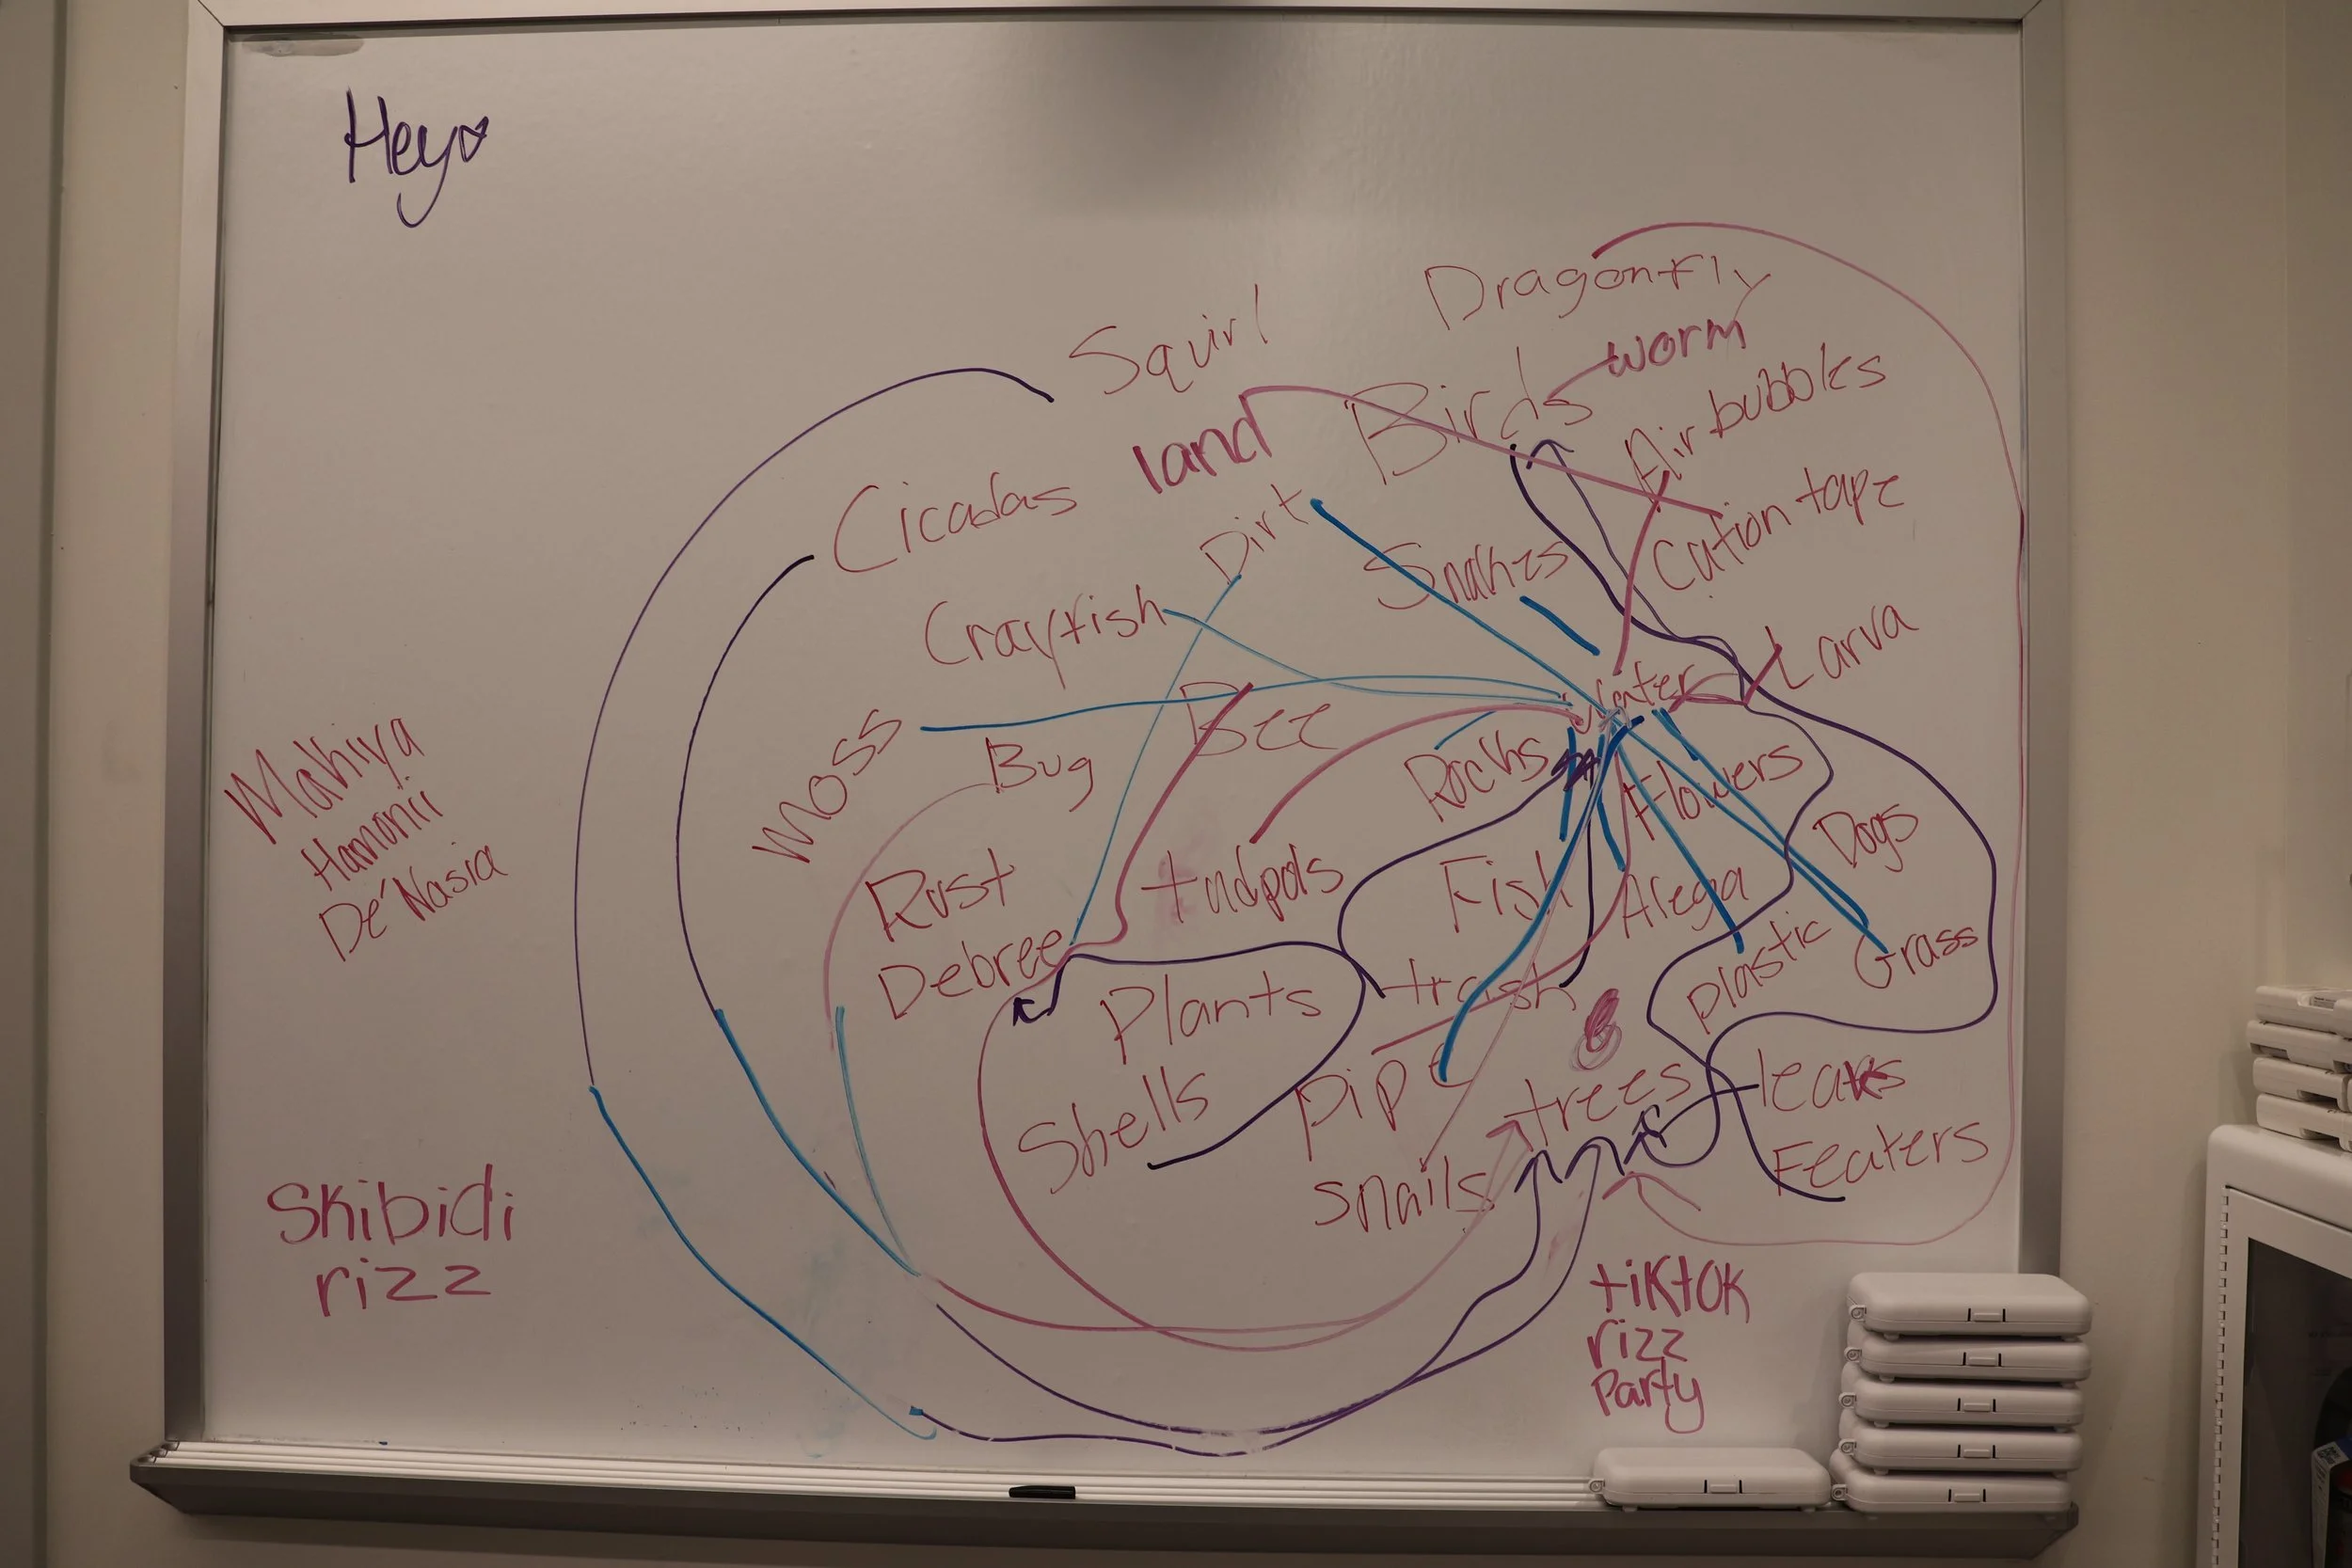 Hey
Dragonfly
worm
Squirl
Birds
Air bubbles
land
Cation tape
Cicadas
Dirt
Snakes
Crayfish
Larva
Water
Bee
Moss
Bug
Rocks
Flowers
Dogs
Mahiya
Hamonii
De'Nasia
Rust
tadpols
Fish
Alega
Debree
Plants
trash
plastic
Grass
Shells
pipe
trees
leaves
snails
Featers
Skibidi
rizz
tiktok
rizz
Party